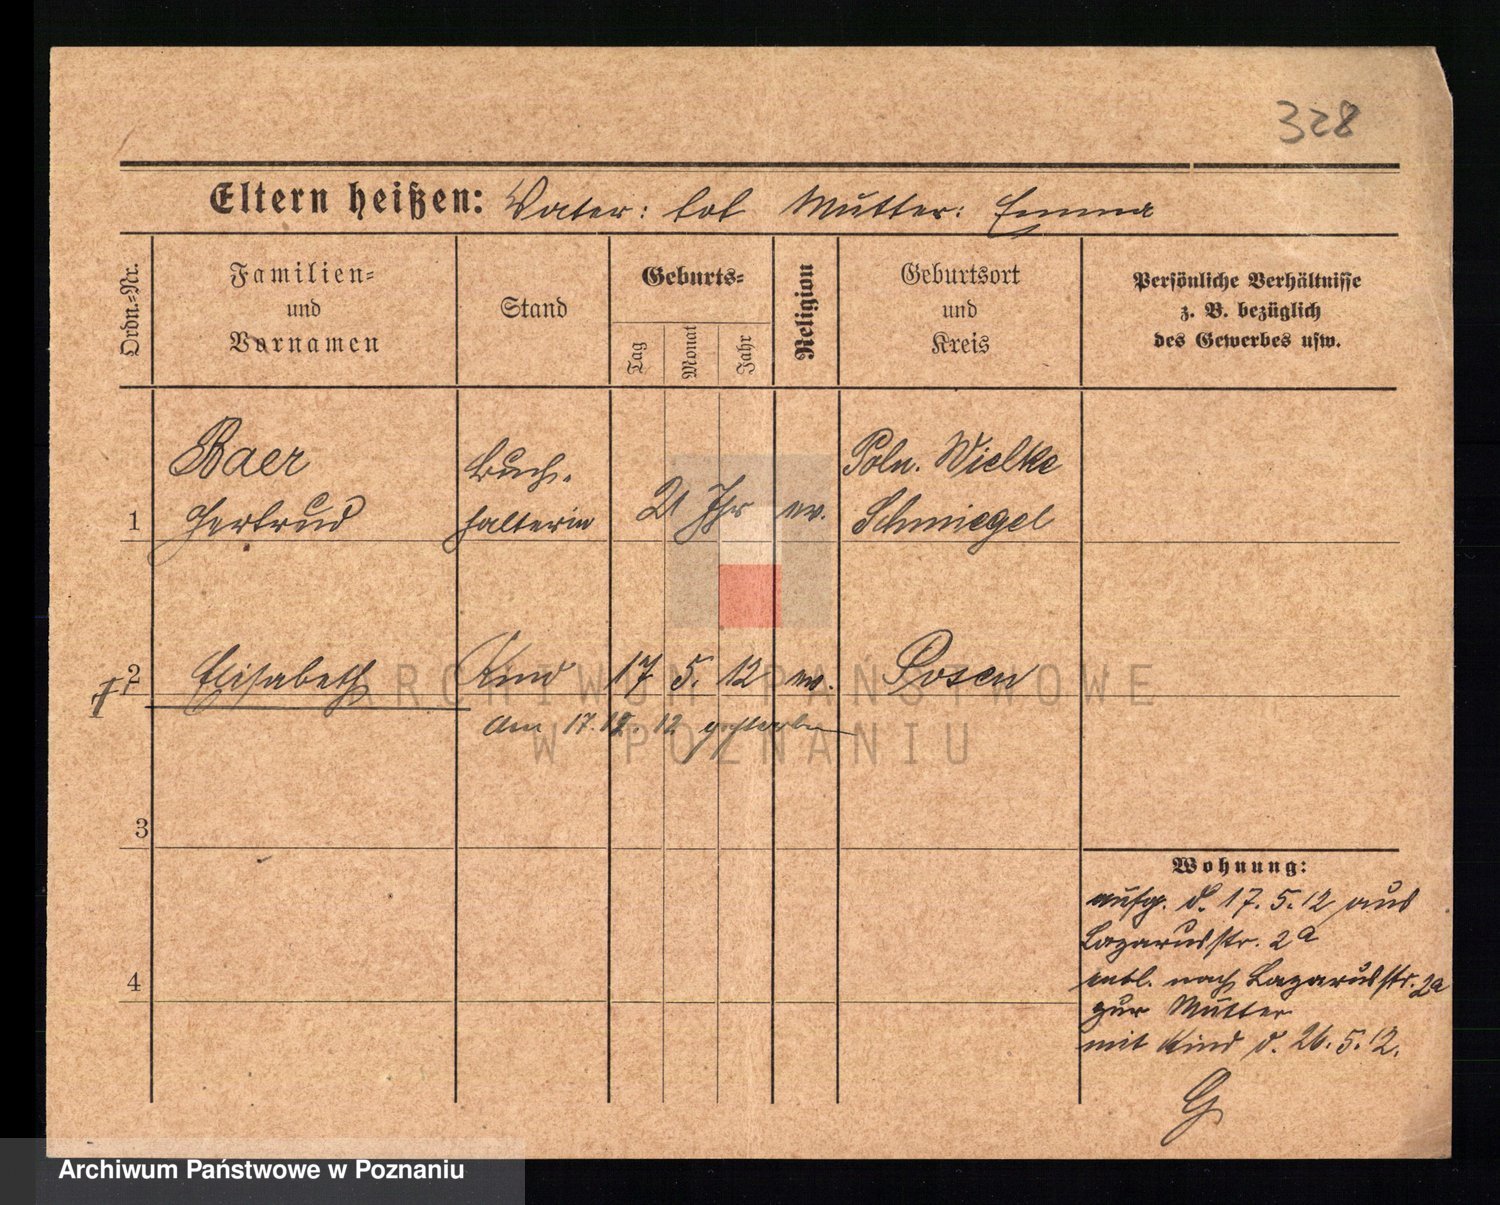 328
Eltern heißen: Vater: tot Mutter: Emma
Ordn.-Nr.
Familien-
und
Vornamen
Stand
Geburts-
Tag
Monat
Jahr
Religion
Geburtsort
und
Kreis
Persönliche Verhältnisse
z. B. bezüglich
des Gewerbes usw.
Baer
Gertrud
1
Buch-
halterin
21 Jhr
ev.
Poln. Wielke
Schmiegel
2
Elisabeth
Kind
17 5. 12
ev.
Posen
am 17. 12. 12 gestorben
ARCHIWUM PAŃSTWOWE
W POZNANIU
3
4
Wohnung:
aufg. d. 17. 5. 12 aus
Lazarusstr. 2a
entl. nach Lazarusstr. 2a
zur Mutter
mit Kind d. 26. 5. 12.
G
Archiwum Państwowe w Poznaniu